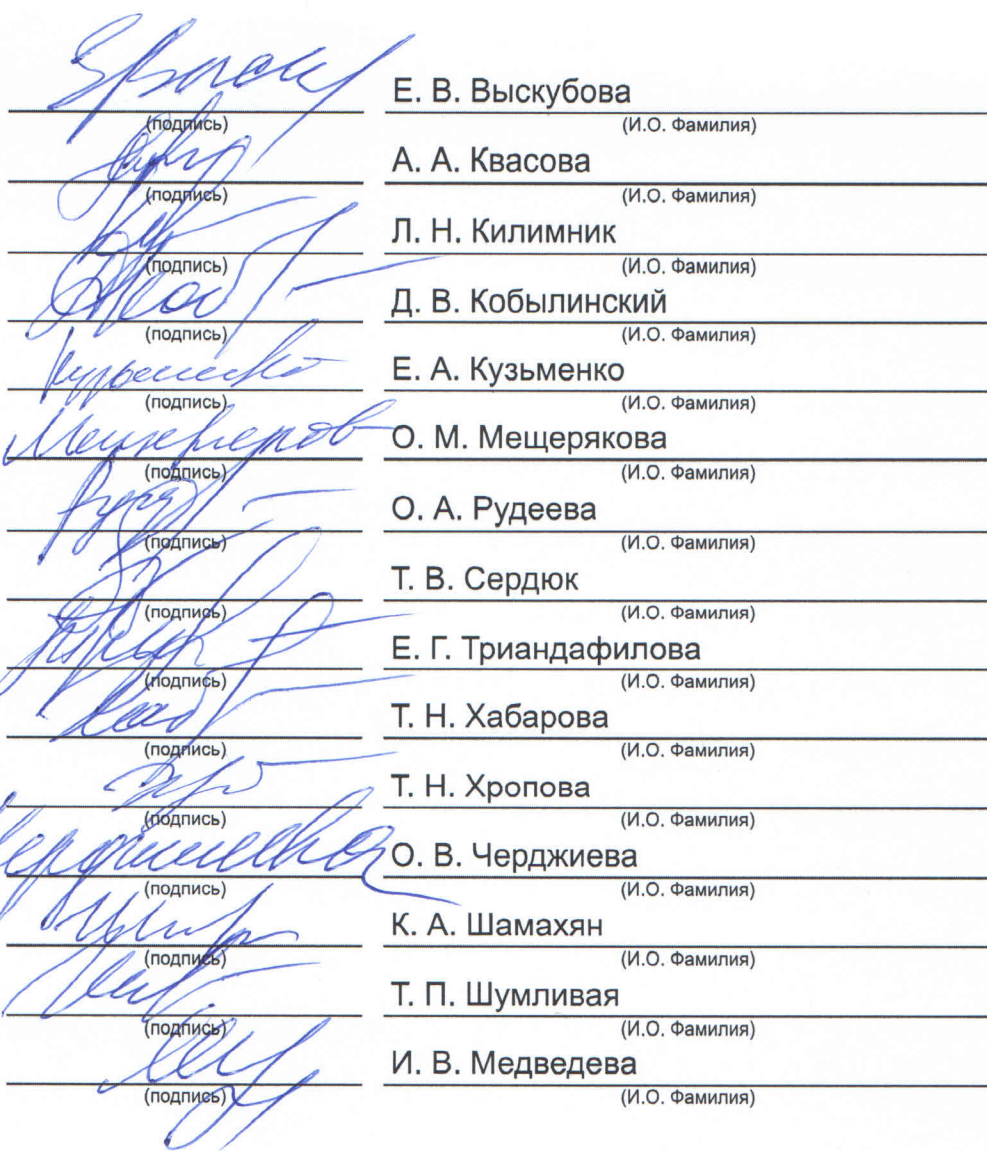 Е. В. Выскубова
(подпись) (И.О. Фамилия)
А. А. Квасова
(подпись) (И.О. Фамилия)
Л. Н. Килимник
(подпись) (И.О. Фамилия)
Д. В. Кобылинский
(подпись) (И.О. Фамилия)
Е. А. Кузьменко
(подпись) (И.О. Фамилия)
О. М. Мещерякова
(подпись) (И.О. Фамилия)
О. А. Рудеева
(подпись) (И.О. Фамилия)
Т. В. Сердюк
(подпись) (И.О. Фамилия)
Е. Г. Триандафилова
(подпись) (И.О. Фамилия)
Т. Н. Хабарова
(подпись) (И.О. Фамилия)
Т. Н. Хропова
(подпись) (И.О. Фамилия)
О. В. Черджиева
(подпись) (И.О. Фамилия)
К. А. Шамахян
(подпись) (И.О. Фамилия)
Т. П. Шумливая
(подпись) (И.О. Фамилия)
И. В. Медведева
(подпись) (И.О. Фамилия)